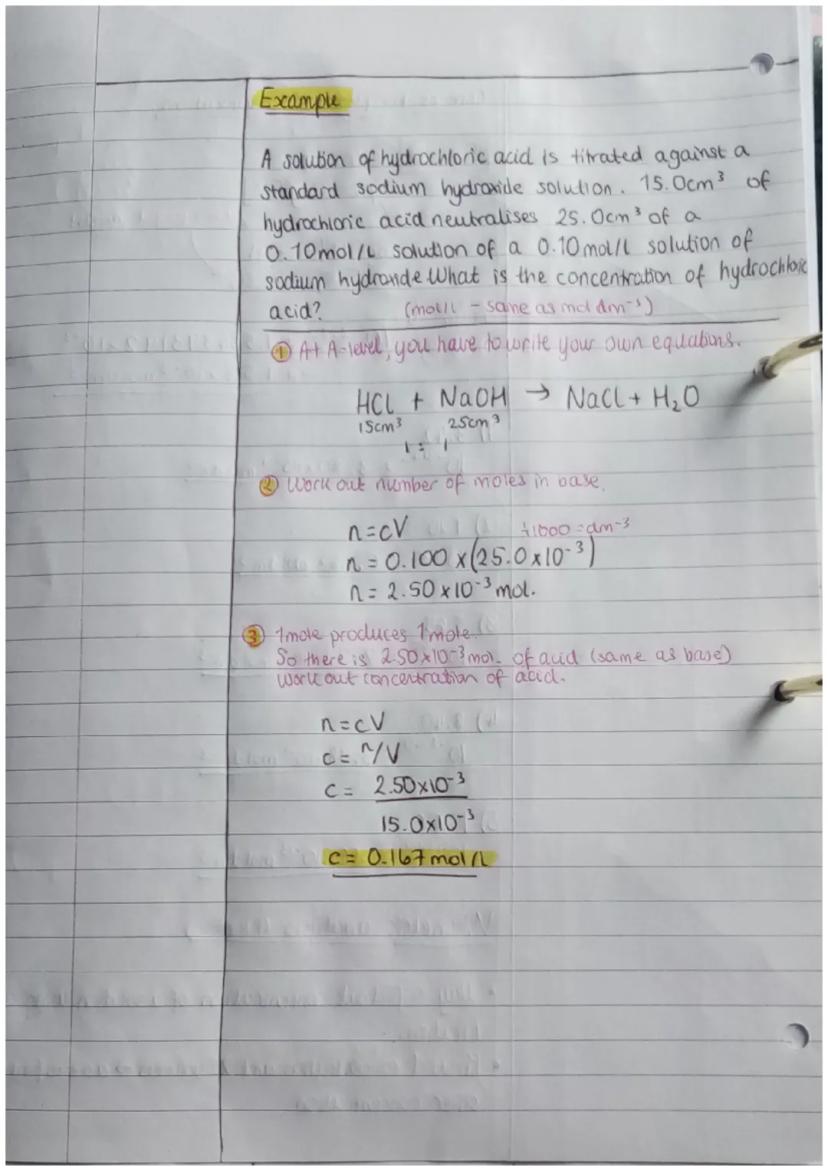 Example
A solution of hydrochloric acid is titrated against a
standard sodium hydroxide solution. 15.0cm³ of
hydrochloric acid neutralises 25.0cm³ of a
0.10mol/L solution of a 0.10mol/L solution of
sodium hydroxide What is the concentration of hydrochloric
acid? (mol/L - same as mol dm⁻³)
① At A-level, you have to write your own equations.
HCl + NaOH → NaCl + H₂O
15cm³ 25cm³
1 : 1
② Work out number of moles in base.
n=cV ÷1000 = dm⁻³
n = 0.100 x (25.0x10⁻³)
n = 2.50 x10⁻³ mol.
③ 1mole produces 1mole.
So there is 2.50x10⁻³ mol. of acid (same as base)
Work out concentration of acid.
n=cV
c = n/V
c = 2.50x10⁻³
15.0x10⁻³
c = 0.167 mol/L